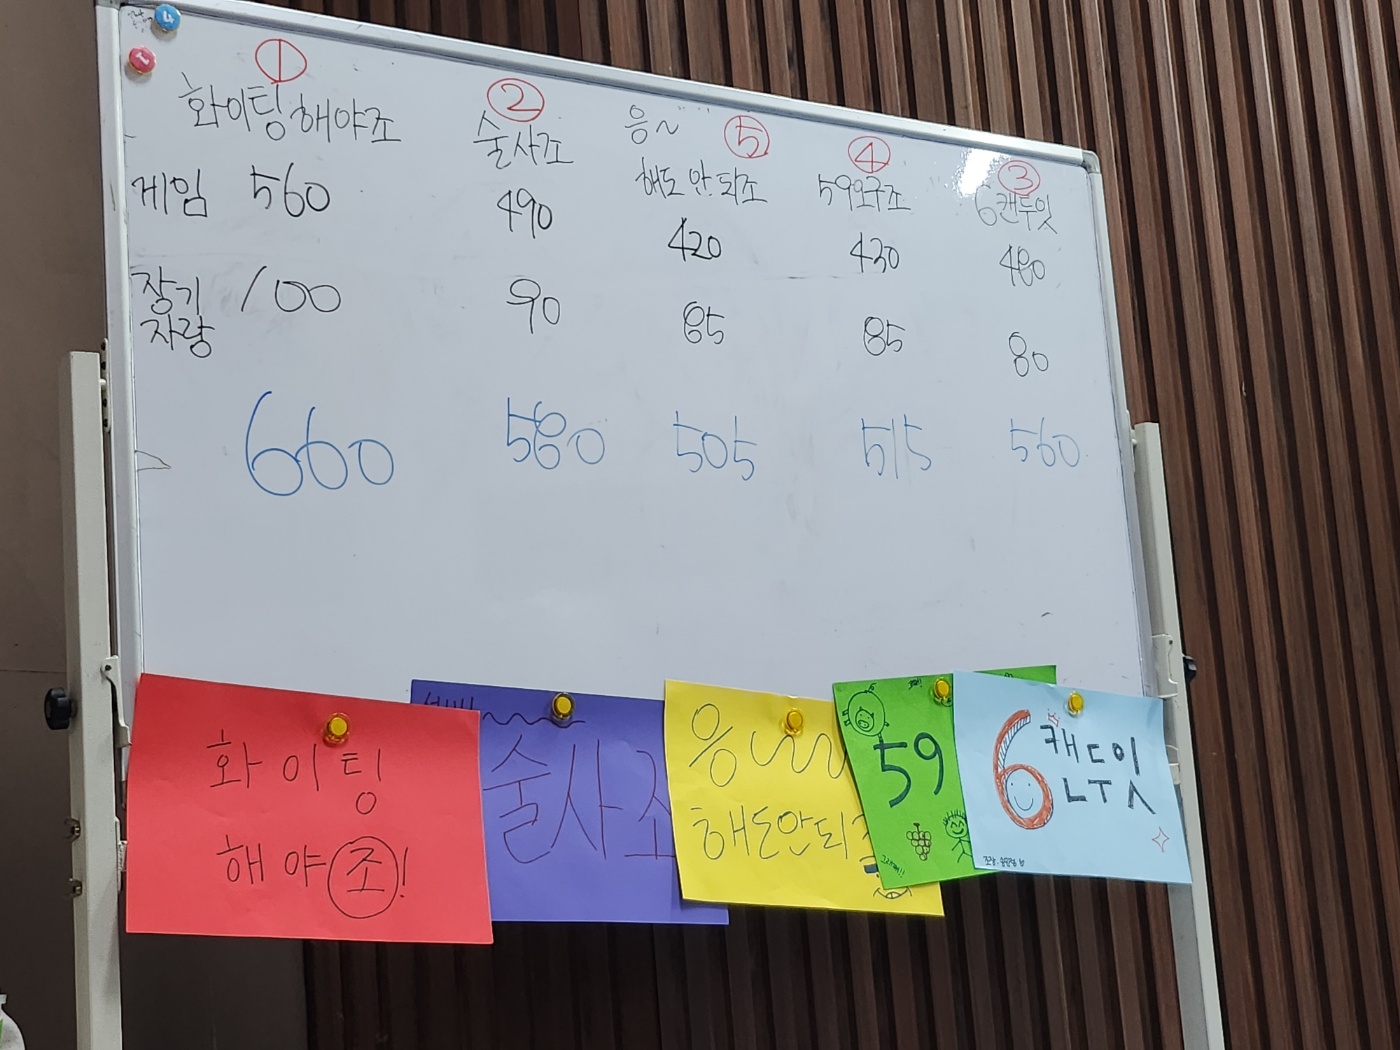 ① ② ⑤ ④ ③
화이팅해야조 술사조 응~ 해도안되조 59일9구조 6캔두잇
게임 560 490 420 430 480
장기자랑 100 90 85 85 80
660 580 505 515 560
화이팅
해야조!
술사조
응~
해도안되조
59
6캔두잇